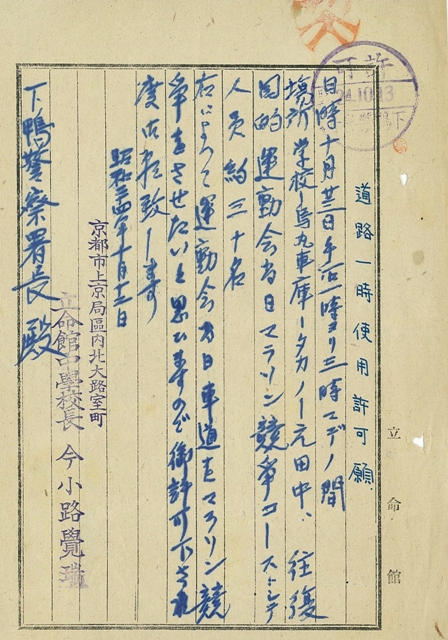 立命館
許可
24.10.13
道路一時使用許可願
日時十月廿三日午后一時ヨリ三時マデノ間
場所学校ー烏丸車庫ータカノー元田中、往復
目的 運動会当日マラソン競争コーストシテ
人員 約三十名
右によつて運動会当日車道をマラソン競
争をさせたいと思ひますので御許可下され
度右願致します
昭和二四年十月十二日
京都市上京局區内北大路室町
立命館中學校長 今小路覺瑞
下鴨警察署長殿